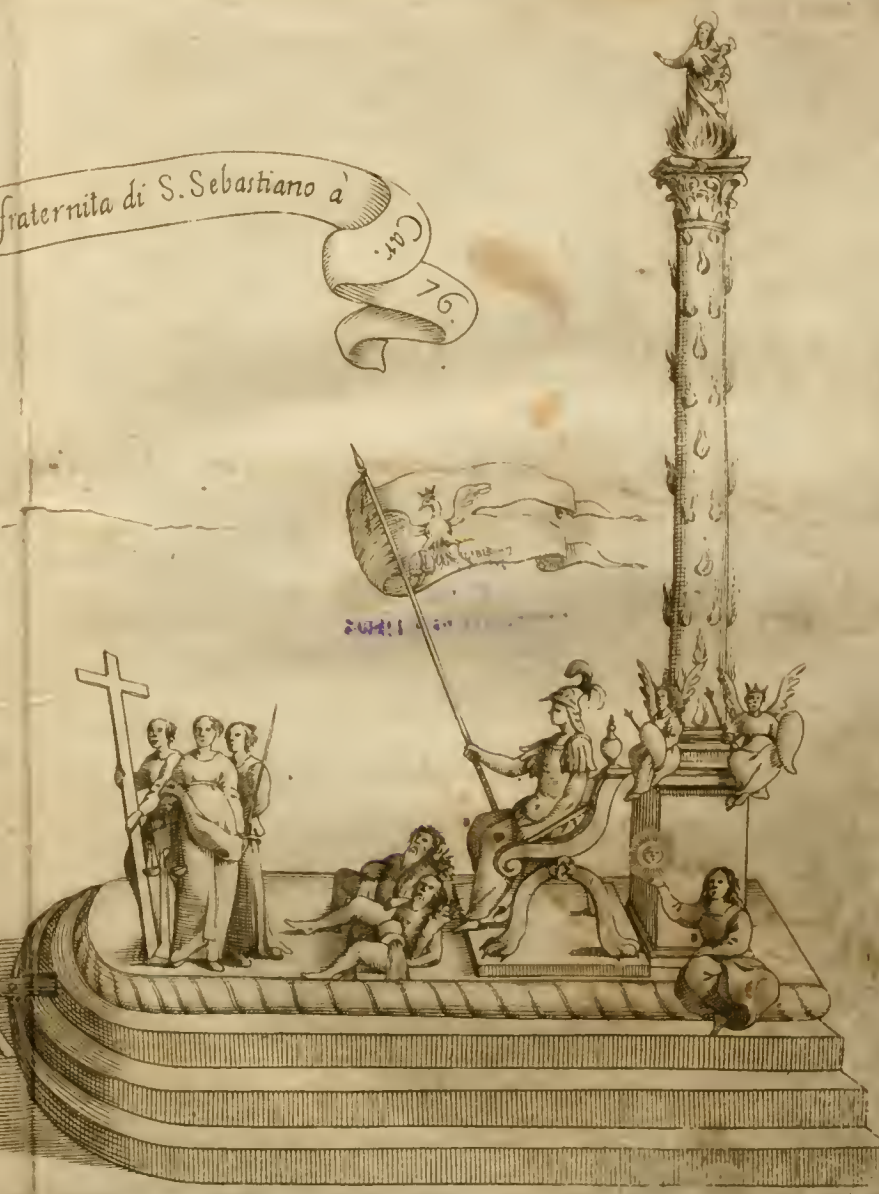 fraternita di S. Sebastiano à
Car.
76.